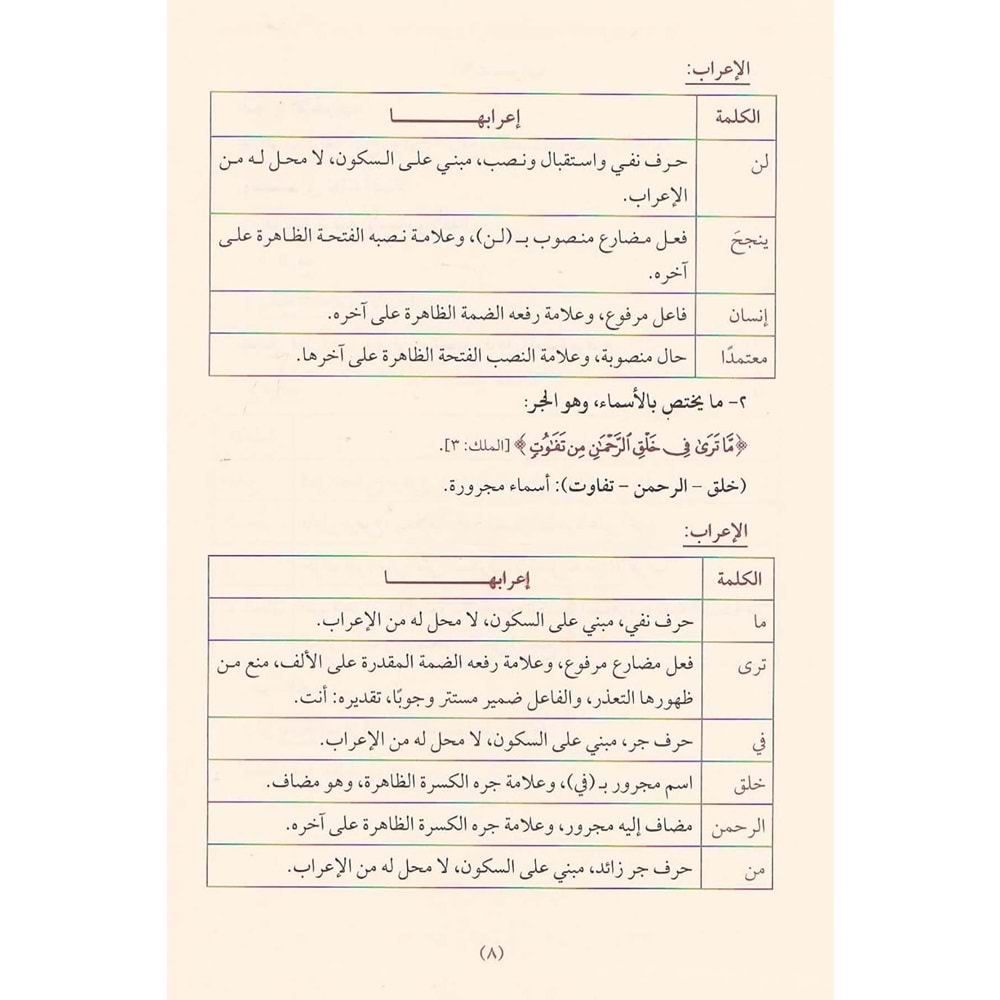 الإعراب:
الكلمة إعرابهـــــــــا
لن حرف نفي واستقبال ونصب، مبني على السكون، لا محل له من
الإعراب.
ينجحَ فعل مضارع منصوب بـ (لن)، وعلامة نصبه الفتحة الظاهرة على
آخره.
إنسان فاعل مرفوع، وعلامة رفعه الضمة الظاهرة على آخره.
معتمدًا حال منصوبة، وعلامة النصب الفتحة الظاهرة على آخرها.
٢- ما يختص بالأسماء، وهو الجر:
﴿مَّا تَرَىٰ فِي خَلْقِ ٱلرَّحْمَٰنِ مِن تَفَٰوُتٍ﴾ [الملك: ٣].
(خلق - الرحمن - تفاوت): أسماء مجرورة.
الإعراب:
الكلمة إعرابهـــــــــا
ما حرف نفي، مبني على السكون، لا محل له من الإعراب.
ترى فعل مضارع مرفوع، وعلامة رفعه الضمة المقدرة على الألف، منع من
ظهورها التعذر، والفاعل ضمير مستتر وجوبًا، تقديره: أنت.
في حرف جر، مبني على السكون، لا محل له من الإعراب.
خلق اسم مجرور بـ (في)، وعلامة جره الكسرة الظاهرة، وهو مضاف.
الرحمن مضاف إليه مجرور، وعلامة جره الكسرة الظاهرة على آخره.
من حرف جر زائد، مبني على السكون، لا محل له من الإعراب.
(٨)